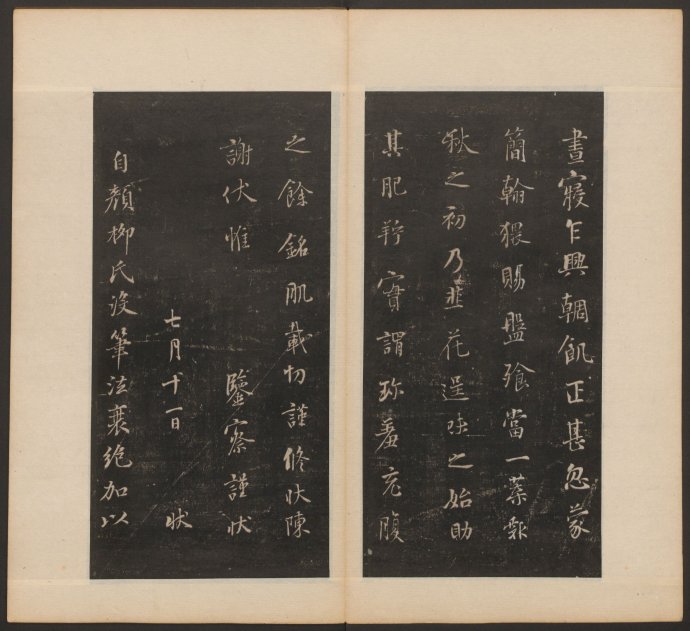 晝寢乍興輖飢正甚忽蒙
簡翰猥賜盤飧當一葉報
秋之初乃韭花逞味之始助
其肥羜實謂珍羞充腹
之餘銘肌載切謹修狀陳
謝伏惟　鑒察謹狀
七月十一日　狀
自顏柳氏沒筆法衰絕加以